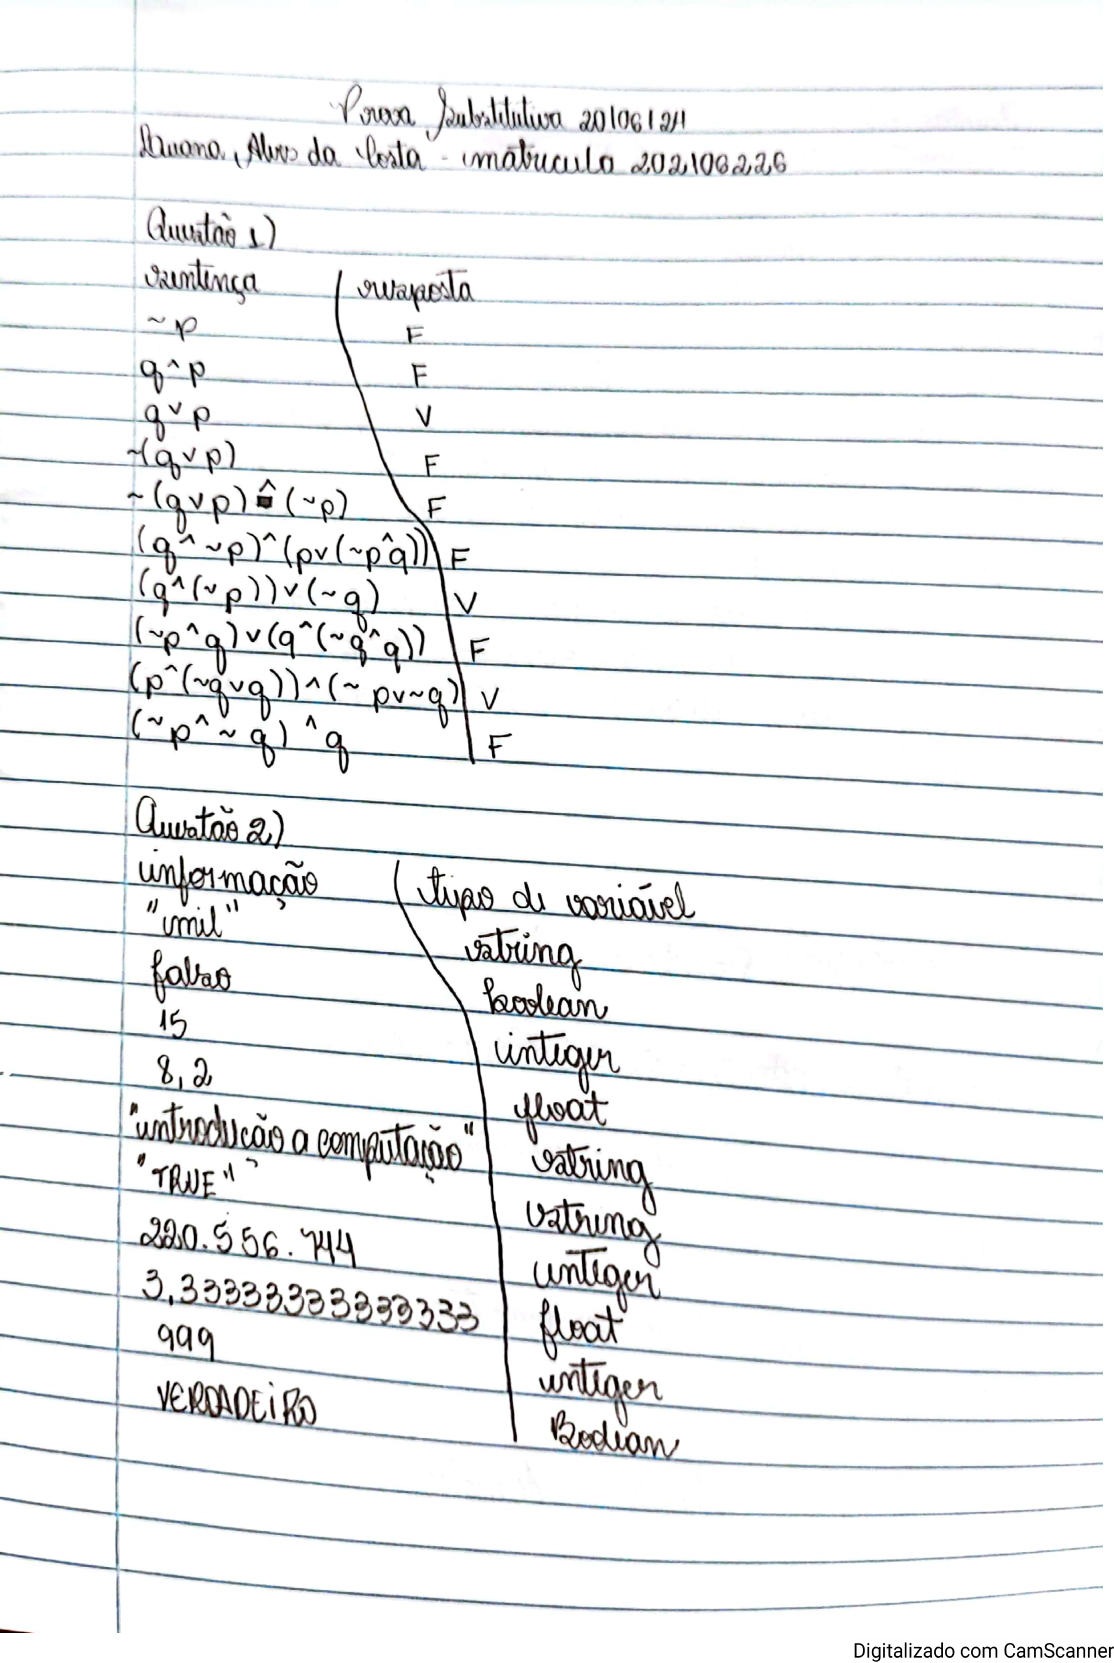 Prova Substitutiva 20/06/24
Luana Alves da Costa - matrícula 202106226
Questão 1)
sentença resposta
~p F
q^p F
q v p V
~(q v p) F
~(q v p) ^ (~p) F
(q ^ ~p) ^ (p v (~p ^ q)) F
(q ^ (~p)) v (~q) V
(~p ^ q) v (q ^ (~q ^ q)) F
(p ^ (~q v q)) ^ (~ p v ~q) V
(~p ^ ~q) ^ q F
Questão 2)
informação tipo de variável
"mil" string
falso boolean
15 integer
8,2 float
"introdução a computação" string
"TRUE" string
220.556.744 integer
3,33333333333333 float
999 integer
VERDADEIRO Boolean
Digitalizado com CamScanner